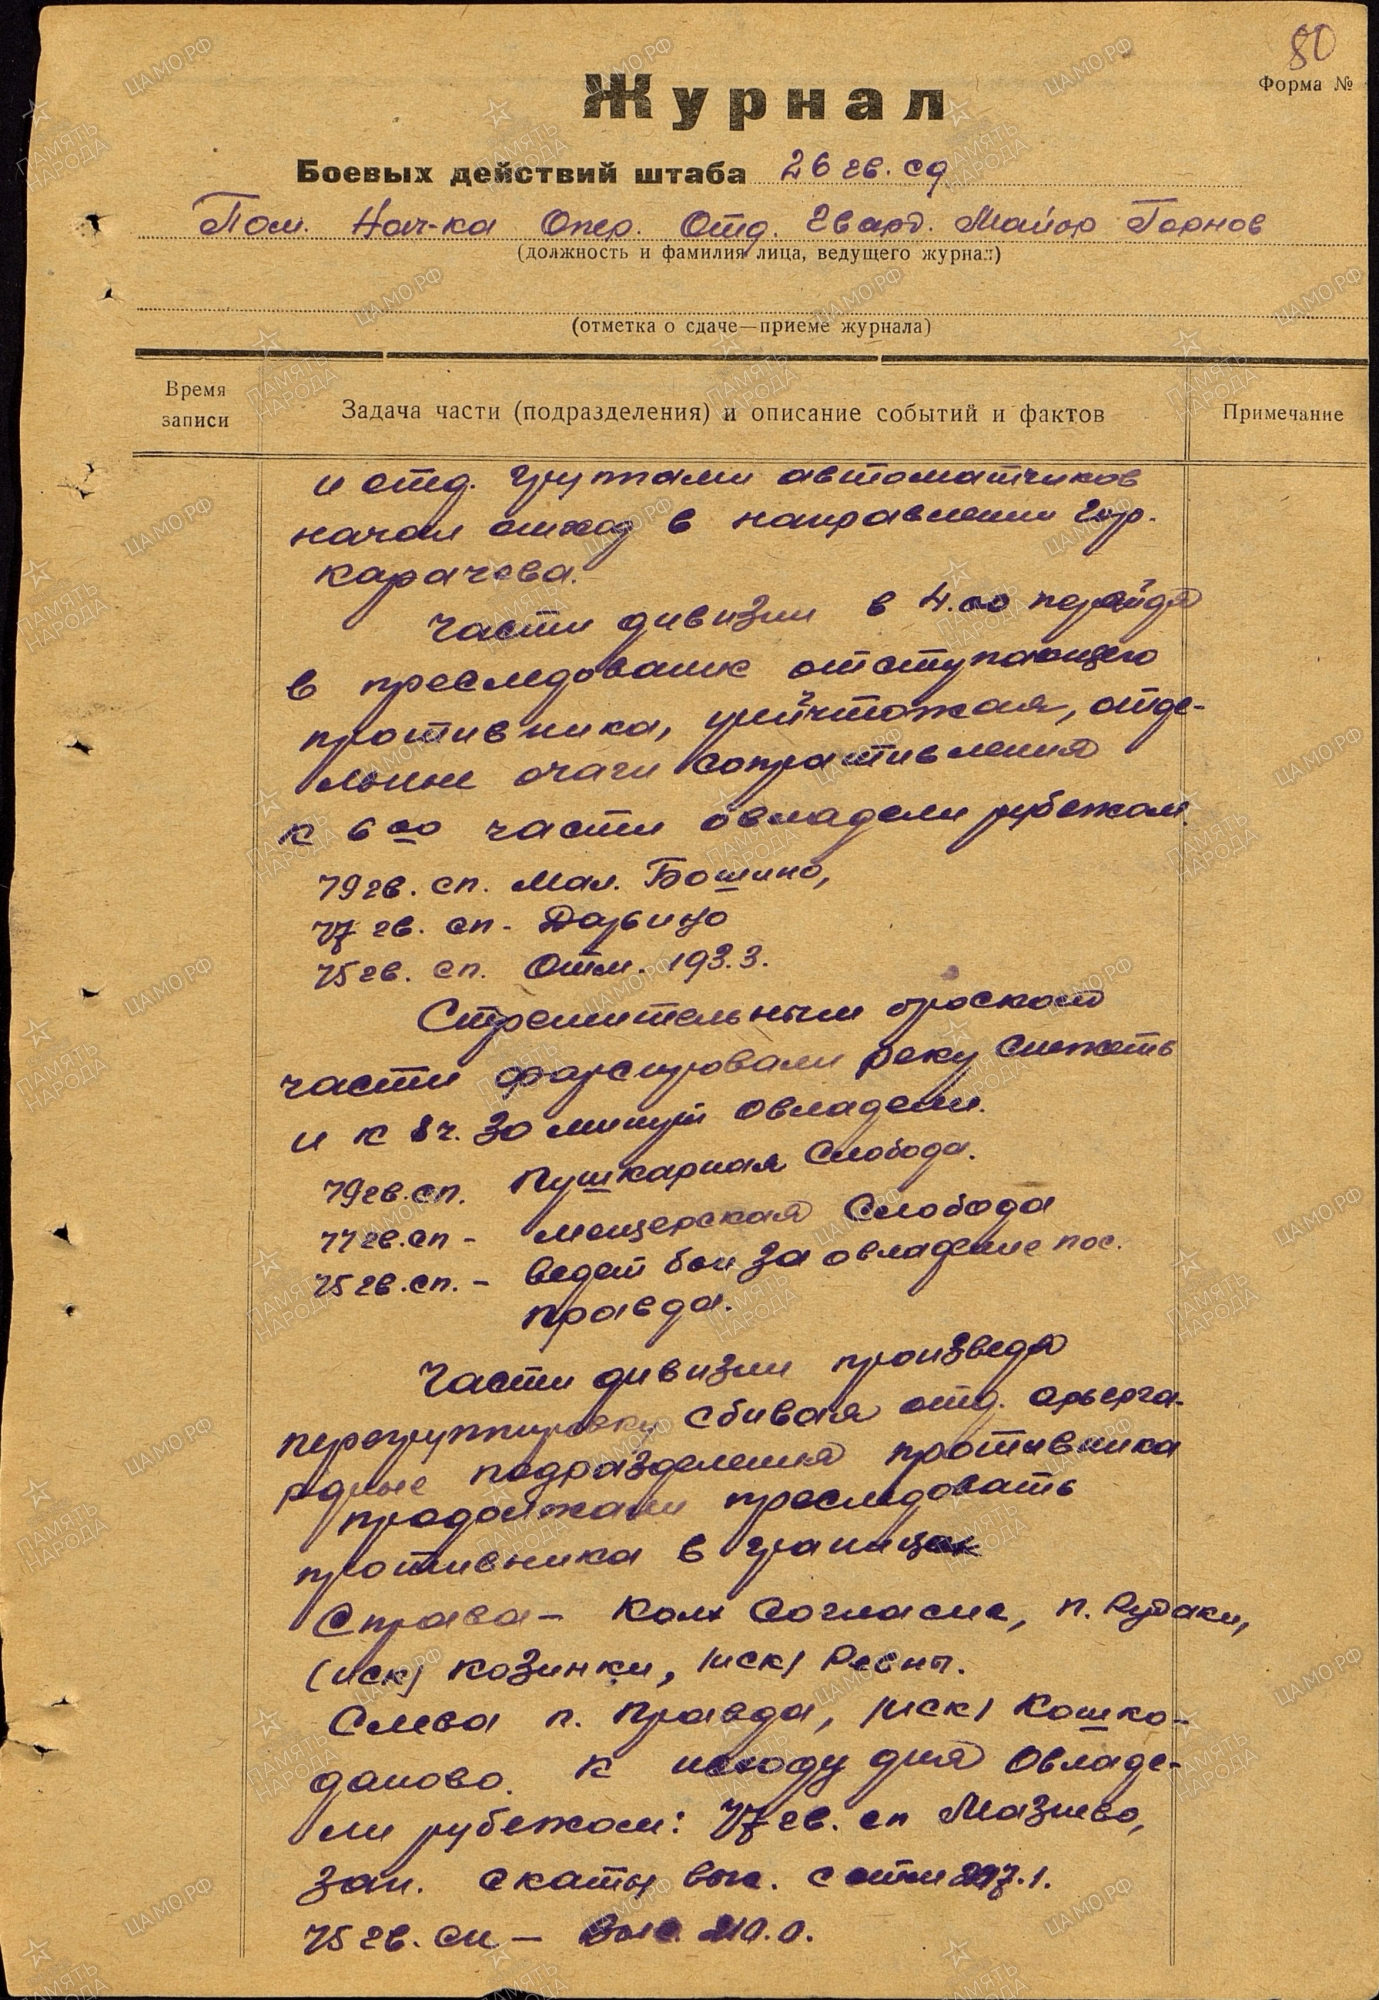 80
Форма №
Журнал
Боевых действий штаба 26 гв. сд
Пом. Нач-ка Опер. Отд. Гвард. Майор Горнов
(должность и фамилия лица, ведущего журнал)
(отметка о сдаче—приеме журнала)
Время записи
Задача части (подразделения) и описание событий и фактов
Примечание
и отд. группами автоматчиков
начал отход в направлении гор.
Карачева.
Части дивизии в 4.00 перейдя
в преследование отступающего
противника, уничтожая, отде-
льные очаги сопративления
к 6 00 части овладели рубежом.
79 гв. сп. Мал. Бошино,
77 гв. сп -
75 гв. сп. Отм. 193.3.
Стремительным броском
части форсировали реку Снежеть
и к 8 ч. 30 минут овладели.
79 гв. сп. Пушкарная Слобода.
77 гв. сп - Мещерская Слобода
75 гв. сп. - ведет бои за овладение пос.
Правда.
Части дивизии произведя
перегруппировку сбивая отд. арьерга-
рдные подразделения противника
продолжали преследовать
противника в границах
Справа - Колх Согласие, п. Рудаки,
(иск) Козинки, (иск) Ревны.
Слева п. Правда, (иск) Кошко-
даново. К исходу дня Овладе-
ли рубежом: 77 гв. сп Мазнево,
зап. скаты выс. с отм 217.1.
75 гв. сп - Выс. 210.0.